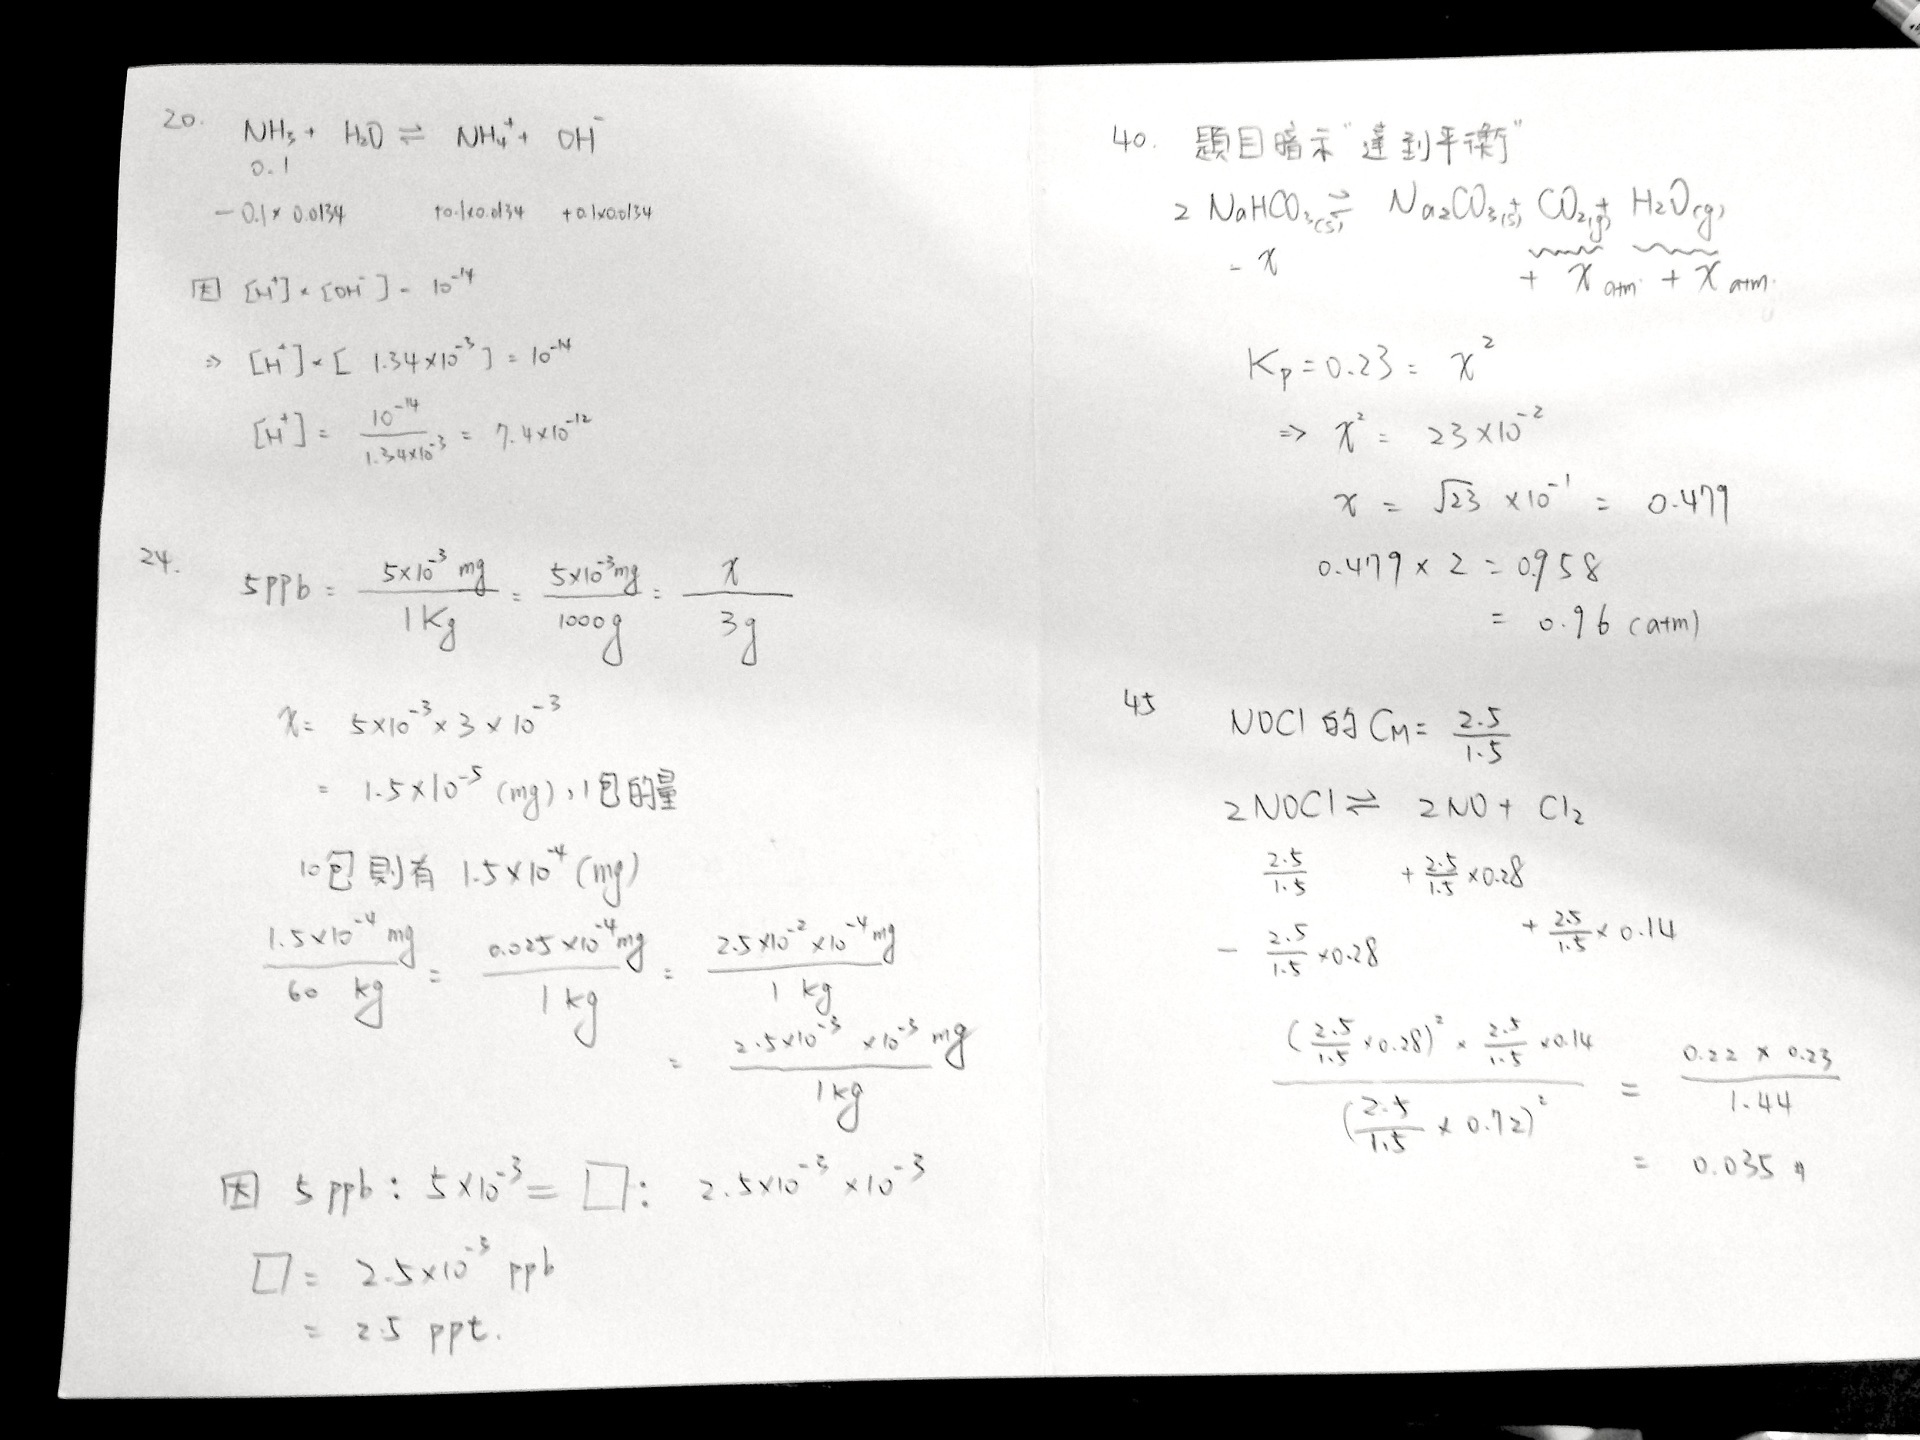 20.
NH₃ + H₂O ⇌ NH₄⁺ + OH⁻
0.1
- 0.1 × 0.0134 +0.1×0.0134 +0.1×0.0134
因 [H⁺] × [OH⁻] = 10⁻¹⁴
⇒ [H⁺] × [ 1.34×10⁻³ ] = 10⁻¹⁴
[H⁺] = 10⁻¹⁴ / 1.34×10⁻³ = 7.4×10⁻¹²
24.
5ppb = 5×10⁻³ mg / 1Kg = 5×10⁻³mg / 1000g = x / 3g
x = 5×10⁻³ × 3 × 10⁻³
= 1.5×10⁻⁵ (mg), 1包的量
10包則有 1.5×10⁻⁴ (mg)
1.5×10⁻⁴ mg / 60 kg = 0.025×10⁻⁴mg / 1 kg = 2.5×10⁻²×10⁻⁴mg / 1 kg
= 2.5×10⁻³ ×10⁻³ mg / 1kg
因 5 ppb : 5×10⁻³ = □ : 2.5×10⁻³ ×10⁻³
□ = 2.5×10⁻³ ppb
= 2.5 ppt.
40. 題目暗示"達到平衡"
2 NaHCO₃(s) ⇌ Na₂CO₃(s) + CO₂(g) + H₂O(g)
- x + x atm + x atm.
Kp = 0.23 = x²
⇒ x² = 23 ×10⁻²
x = √23 ×10⁻¹ = 0.479
0.479 × 2 = 0.958
= 0.96 (atm)
45
NOCl 的 CM = 2.5 / 1.5
2NOCl ⇌ 2NO + Cl₂
2.5 / 1.5 + 2.5 / 1.5 ×0.28
- 2.5 / 1.5 ×0.28 + 2.5 / 1.5 × 0.14
(2.5 / 1.5 ×0.28)² × 2.5 / 1.5 ×0.14 / (2.5 / 1.5 × 0.72)² = 0.22 × 0.23 / 1.44
= 0.035